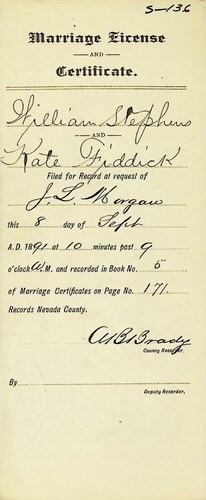 S-136
Marriage License
AND
Certificate.
William Stephens
AND
Kate Fiddick
Filed for Record at request of
J. L. Morgan
this 8 day of Sept
A.D. 1891 at 10 minutes past 9
o'clock A.M. and recorded in Book No. 5
of Marriage Certificates on Page No. 171.
Records Nevada County.
A B Brady
County Recorder.
By
Deputy Recorder,